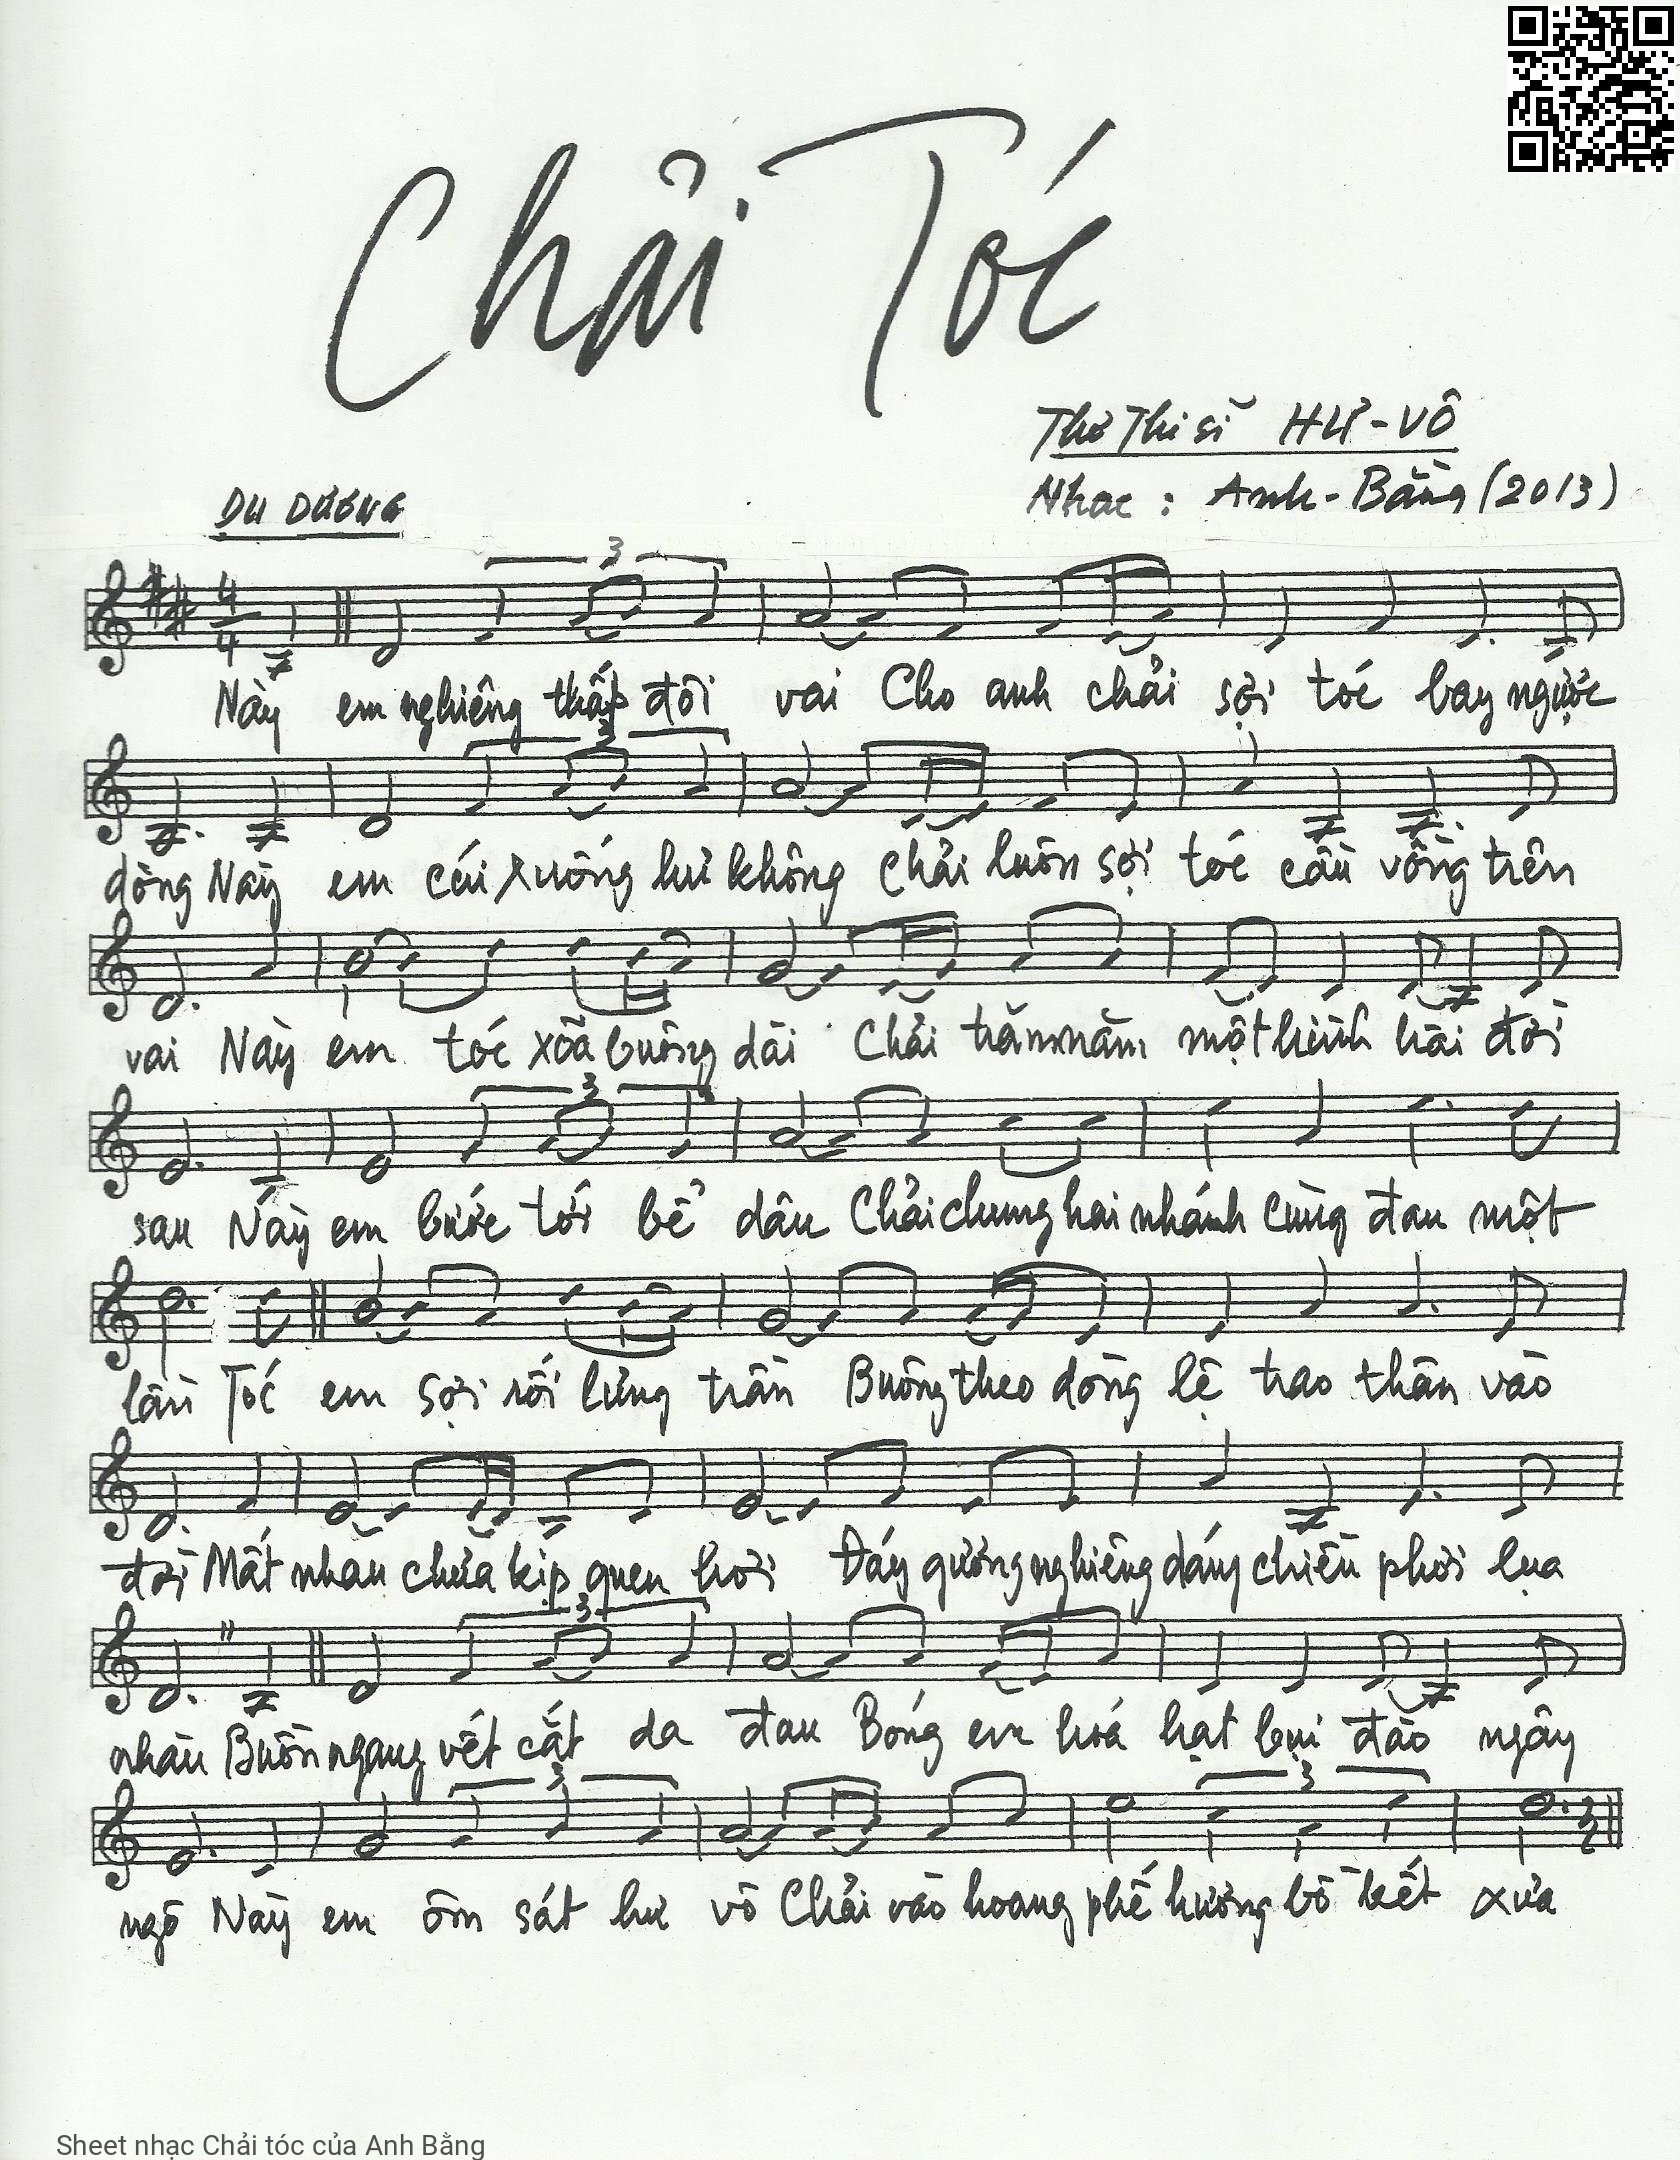 Chải Tóc
Thơ Thi sĩ HƯ-VÔ
Nhạc: Anh-Bằng (2013)
DU DƯƠNG
4
4
3
Này em nghiêng thấp đôi vai Cho anh chải sợi tóc bay ngược
3
dòng Này em cúi xuống hư không Chải luôn sợi tóc cầu vồng trên
vai Này em tóc xõa buông dài Chải trăm năm một hình hài đời
3
sau Này em bước tới bể dâu Chải chung hai nhánh cùng đau một
lần Tóc em sợi rối lưng trần Buông theo dòng lệ trao thân vào
đời Mất nhau chưa kịp quen hơi Đáy gương nghiêng dáng chiều phơi lụa
3
nhàu Buồn ngang vết cắt da đau Bóng em hoá hạt bụi đào ngây
3 3
ngô Này em ôm sát hư vô Chải vào hoang phế hương bồ kết xưa
Sheet nhạc Chải tóc của Anh Bằng